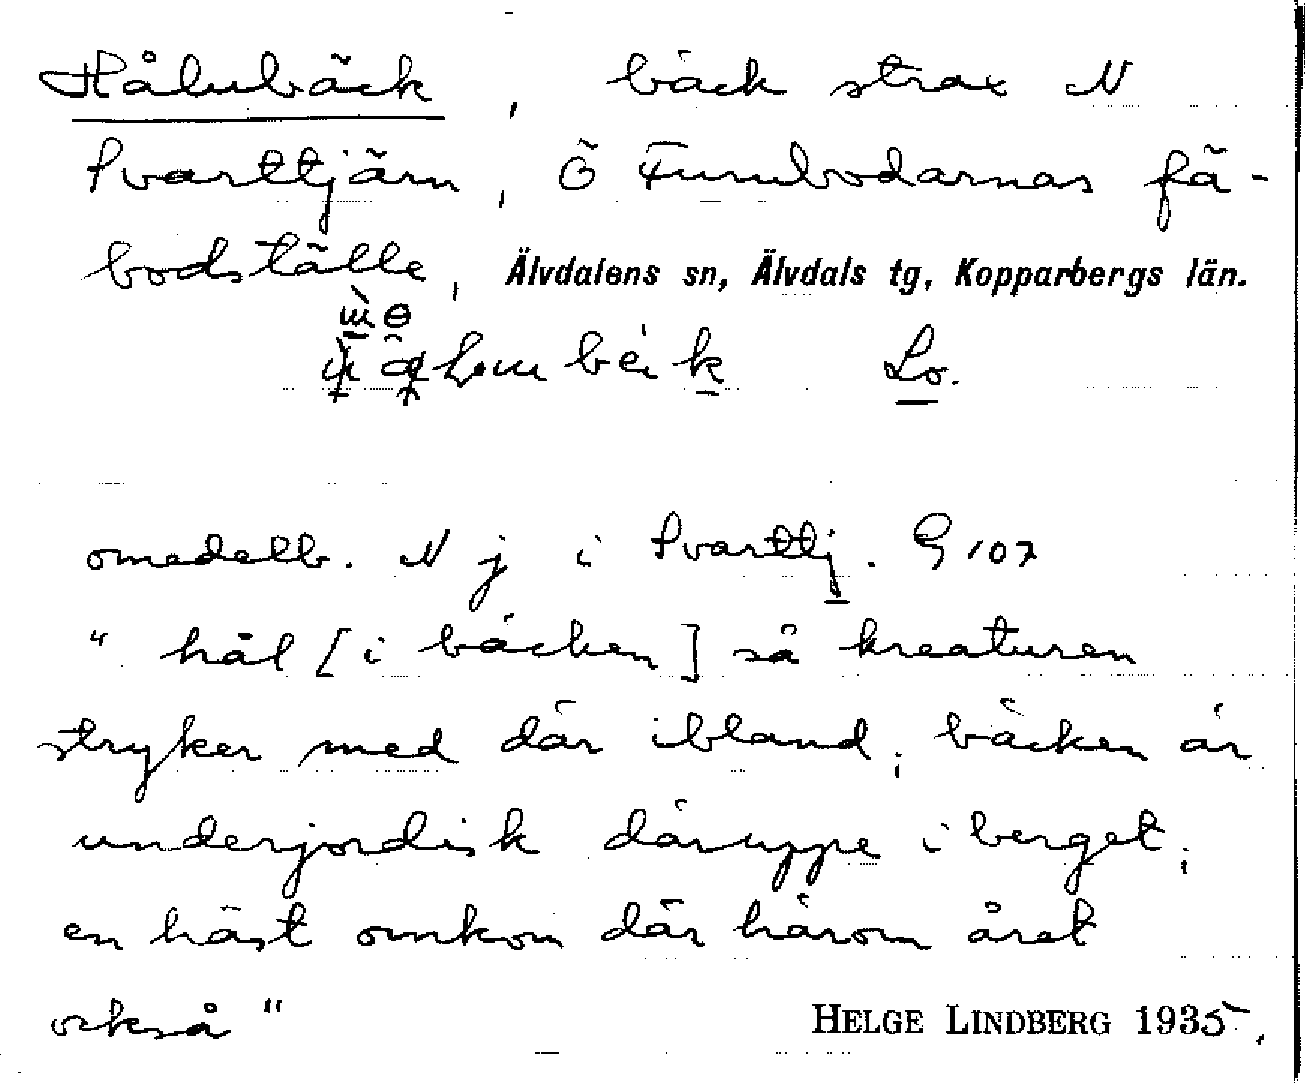 Hålubäck, bäck strax N
Svarttjärn, Ö Furubodarnas fä-
bodställe, Älvdalens sn, Älvdals tg, Kopparbergs län.
Lo.
omedelb. N j i Svarttj. G 107
"hål [i bäcken] så kreaturen
stryker med där ibland; bäcken är
underjordisk däruppe i berget;
en häst omkom där härom året
också"
HELGE LINDBERG 1935.